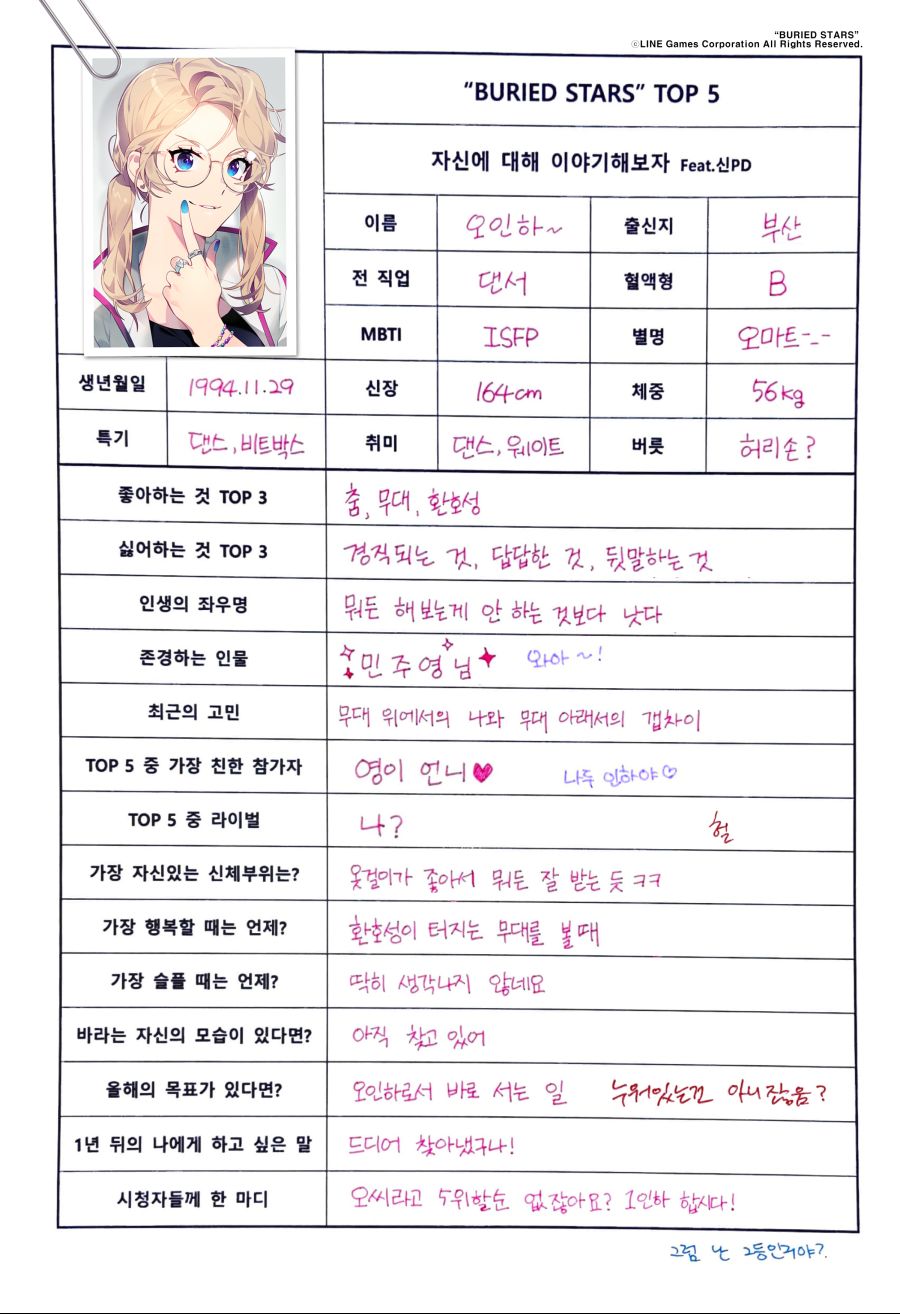 “BURIED STARS”
ⓒLINE Games Corporation All Rights Reserved.
“BURIED STARS” TOP 5
자신에 대해 이야기해보자 Feat.신PD
이름 오인하~ 출신지 부산
전 직업 댄서 혈액형 B
MBTI ISFP 별명 오마트-_-
생년월일 1994.11.29 신장 164cm 체중 56kg
특기 댄스, 비트박스 취미 댄스, 웨이트 버릇 허리손?
좋아하는 것 TOP 3 춤, 무대, 환호성
싫어하는 것 TOP 3 경직되는 것, 답답한 것, 뒷말하는 것
인생의 좌우명 뭐든 해보는게 안 하는 것보다 낫다
존경하는 인물 민주영님 와아~!
최근의 고민 무대 위에서의 나와 무대 아래서의 갭차이
TOP 5 중 가장 친한 참가자 영이 언니♥ 나두 인하야♡
TOP 5 중 라이벌 나? 헐
가장 자신있는 신체부위는? 옷걸이가 좋아서 뭐든 잘 받는 듯 ㅋㅋ
가장 행복할 때는 언제? 환호성이 터지는 무대를 볼 때
가장 슬플 때는 언제? 딱히 생각나지 않네요
바라는 자신의 모습이 있다면? 아직 찾고 있어
올해의 목표가 있다면? 오인하로서 바로 서는 일 누워있는건 아니잖음?
1년 뒤의 나에게 하고 싶은 말 드디어 찾아냈구나!
시청자들께 한 마디 오씨라고 5위할순 없잖아요? 1인하 합시다!
그럼 난 2등인거야?